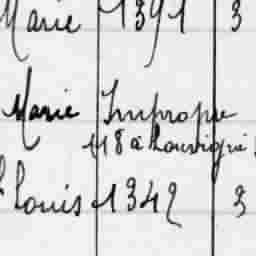 Marie 1391 3
Marie Impropre
118 à Louvigné
Louis 1342 3